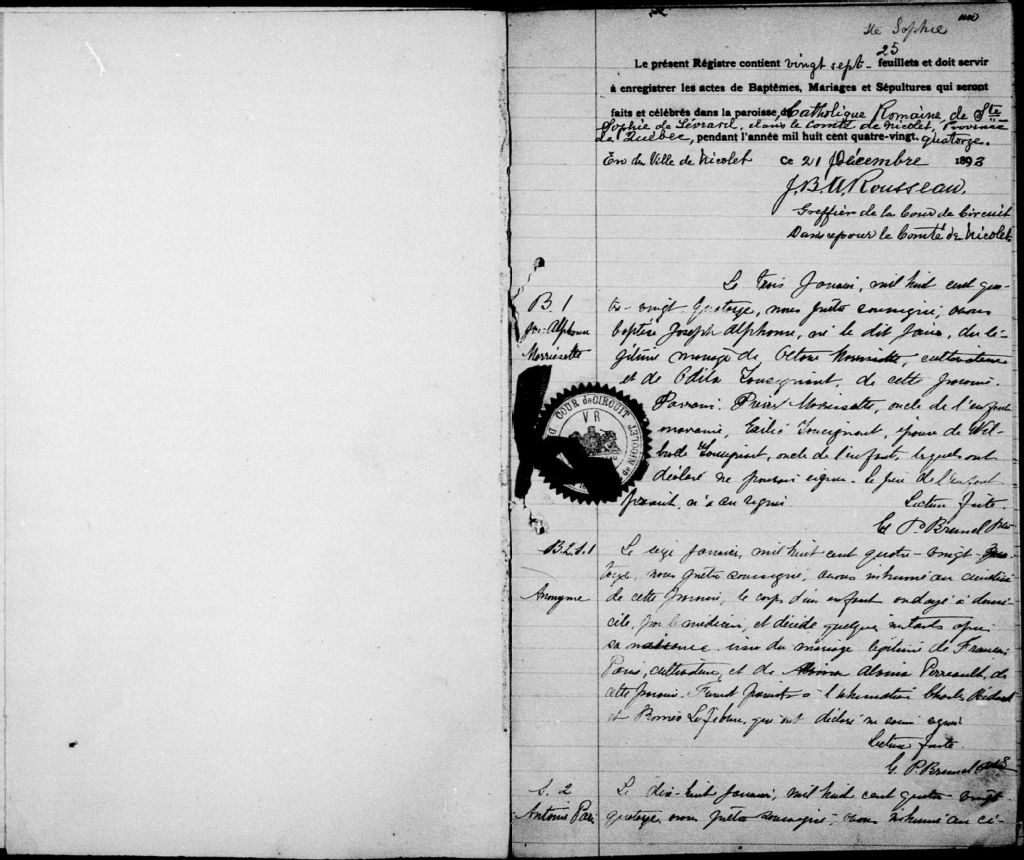 Ste Sophie
25
Le présent Régistre contient vingt sept feuillets et doit servir
à enregistrer les actes de Baptêmes, Mariages et Sépultures qui seront
faits et célébrés dans la paroisse d Catholique Romaine de Ste
Sophie de Lévrard, dans le Comté de Nicolet, Province
de Québec, pendant l'année mil huit cent quatre-vingt-quatorze.
En la Ville de Nicolet Ce 21 Décembre 1893
J.B.A. Rousseau.
Greffier de la Cour de Circuit
Dans & pour le Comté de Nicolet
B. 1
Jos. Alphonse
Morrissette
Le trois Janvier, mil huit cent qua-
tre-vingt-quatorze, nous prêtre soussigné, avons
baptisé Joseph Alphonse, né le dit jour, du lé-
gitime mariage de Octave Morrissette, cultivateur
et de Odila Tousignant, de cette paroisse.
Parrain Pierre Morissette, oncle de l'enfant
marraine, Tousignant, épouse de
Tousignant, oncle de l'enfant, lesquels ont
déclaré ne pouvoir signer. le père de l'enfant
présent, n'a su signer.
Lecture faite.
G. P. Brunel Ptre
COUR de CIRCUIT
VR
de NICOLET
B.2.S.1
Anonyme
Le seize Janvier, mil huit cent quatre-vingt-qua-
torze, nous prêtre soussigné, avons inhumé au cimetière
de cette paroisse, le corps d'un enfant ondoyé à domi-
cile, par le médecin, et décédé quelques instants après
sa naissance, issu du mariage légitime de François
Paris, cultivateur, et de Alvina Perreault, de
cette paroisse. Furent présents à l'inhumation Charles
et Roméo Lefebvre, qui ont déclaré ne savoir signer
Lecture faite.
G. P. Brunel Ptre
S. 2
Antoine Paris
Le dix-huit Janvier, mil huit cent quatre-vingt-
quatorze, nous prêtre soussigné, avons inhumé au ci-